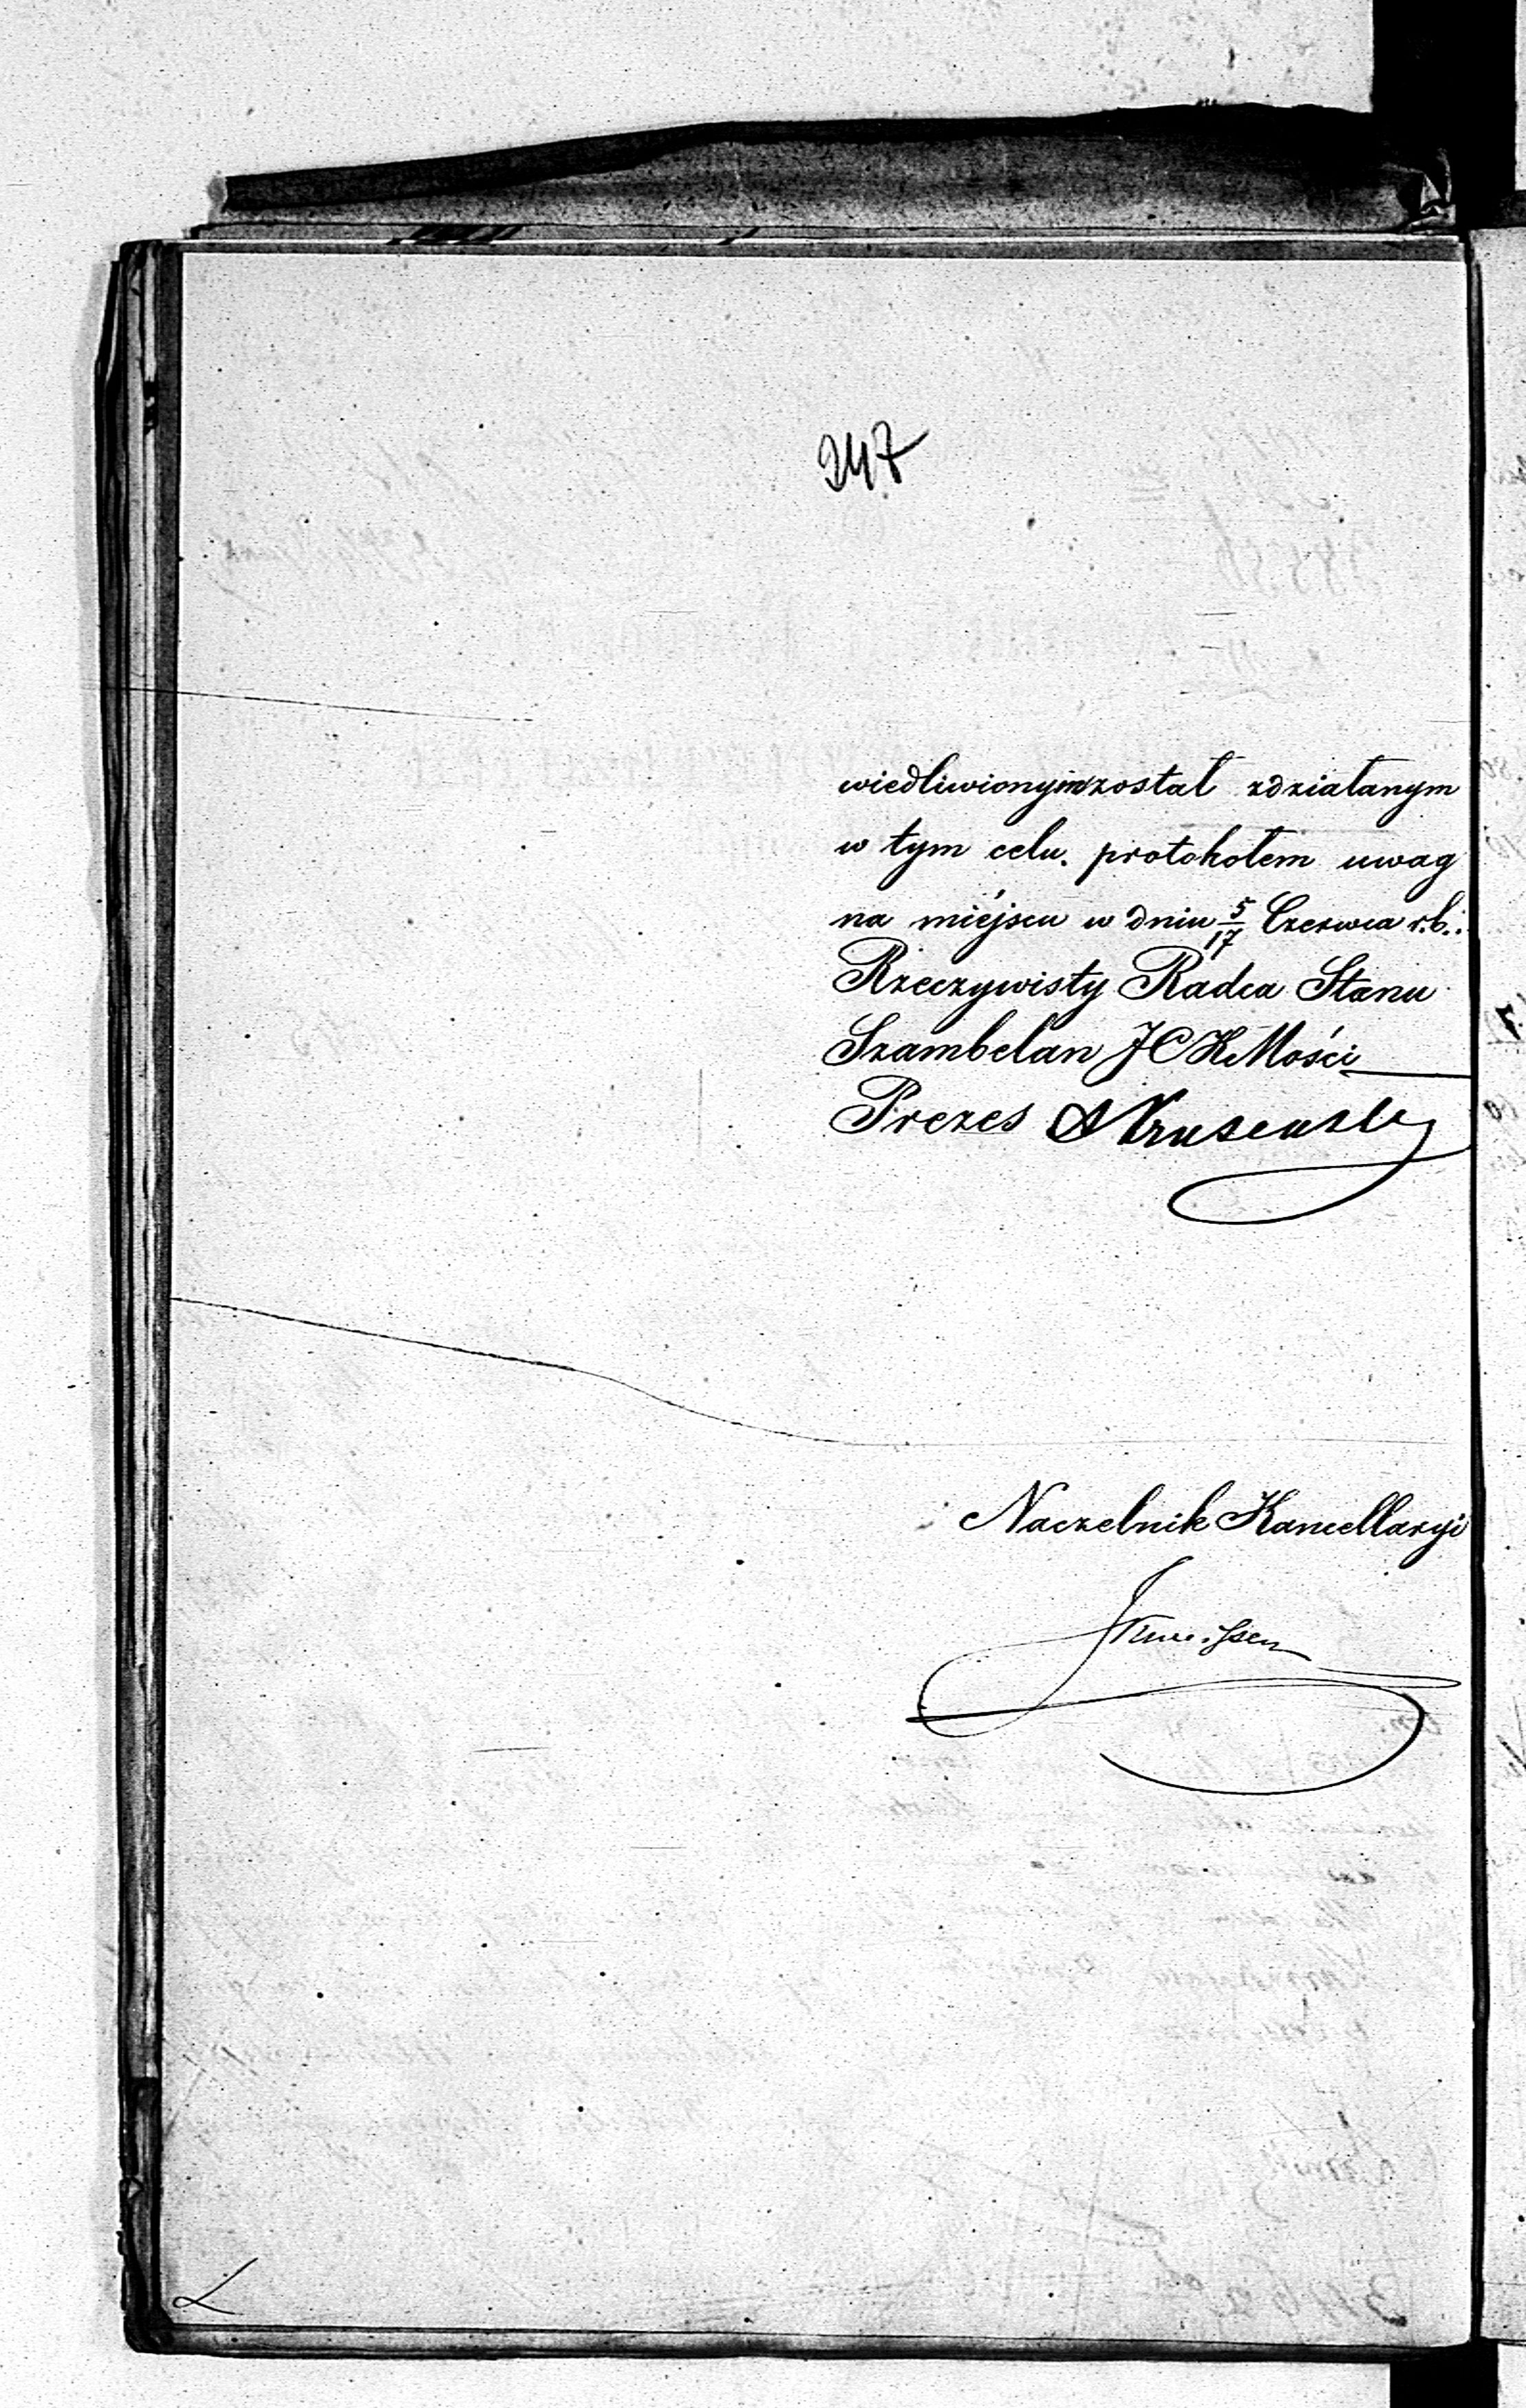 247
wiedliwionym został zdziałanym
w tym celu. protokołem uwag
na miéjscu w dniu 5/17 Czerwca r.b.:
Rzeczywisty Radca Stanu
Szambelan JCKMości
Prezes
Naczelnik Kancellaryi